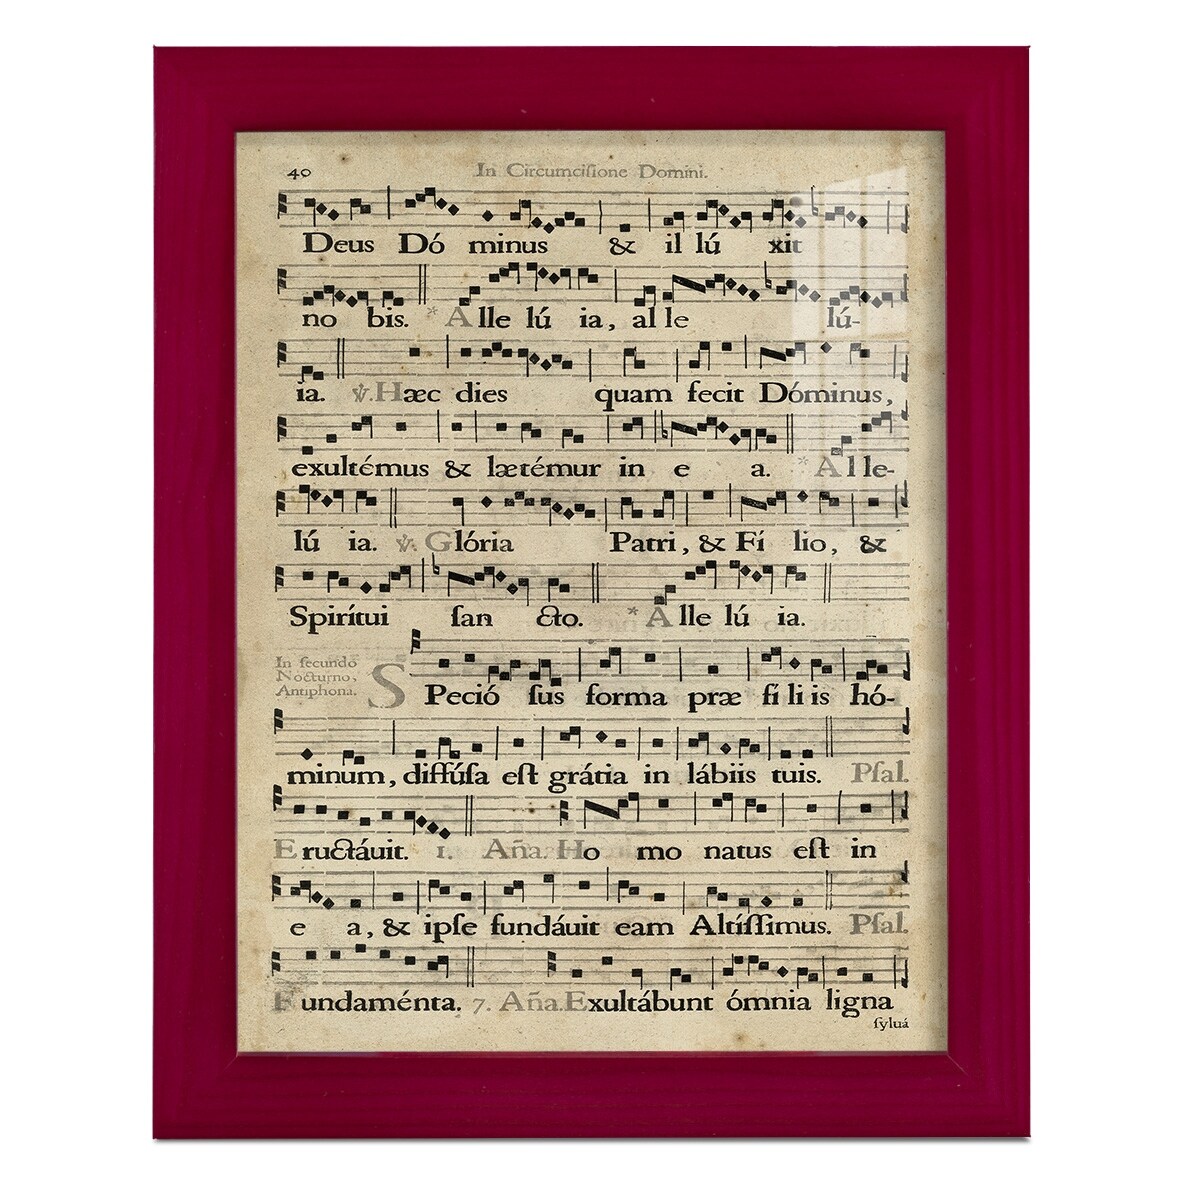 40 In Circumciſione Domini.
Deus Dó minus & il lú xit
no bis. * A lle lú ia, al le lú-
ia. ℣. Hæc dies quam fecit Dóminus,
exultémus & lætémur in e a. * A l le-
lú ia. ℣. Glória Patri, & Fí lio, &
Spirítui ſan cto. * A lle lú ia.
In ſecundo
Nocturno,
Antiphona.
SPeció ſus forma præ fi li is hó-
minum, diffúſa eſt grátia in lábiis tuis. Pſal.
Eructáuit. 1. Aña. Ho mo natus eſt in
e a, & ipſe fundáuit eam Altíſſimus. Pſal.
Fundaménta. 7. Aña. Exultábunt ómnia ligna
ſyluá